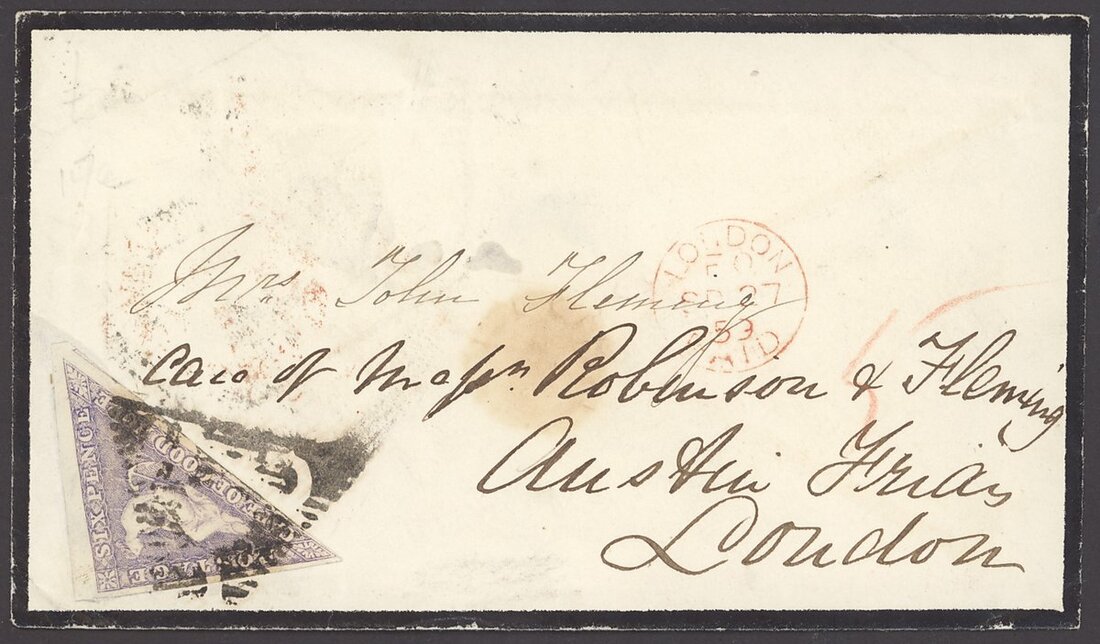 Mrs John Fleming
LONDON
27
59
PAID
care of Messrs Robinson & Fleming
Austin Friars
London
SIX PENCE
CAPE OF GOOD HOPE
POSTAGE